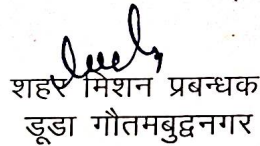 शहर मिशन प्रबन्धक
डूडा गौतमबुद्वनगर